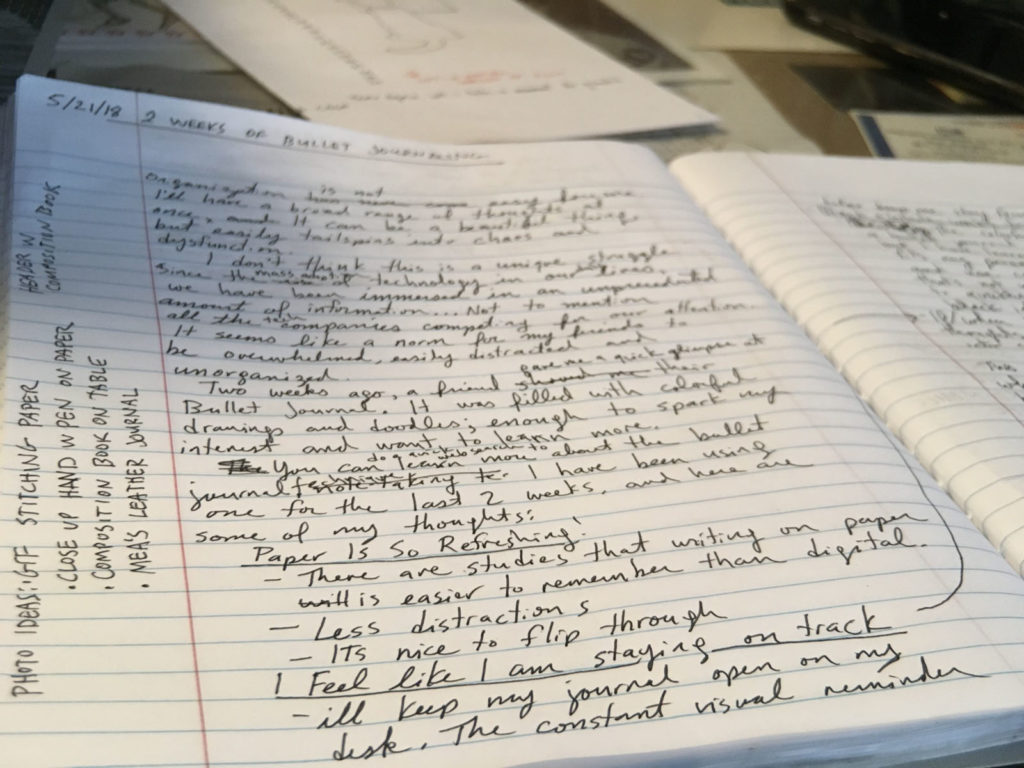 5/21/18 2 WEEKS OF BULLET
Organization is not
I'll have a broad range of thoughts at
once, and It can be a beautiful thing,
but easily tailspins into chaos and
dysfunction.
I don't think this is a unique struggle
Since the mass of technology in our lives.
we have been immersed in an unprecedented
amount of information... Not to mention
all the companies competing for our attention.
It seems like a norm for my friends to
be overwhelmed, easily distracted and
unorganized.
Two weeks ago, a friend gave me a quick glimpse at their
Bullet Journal. It was filled with colorful
drawings and doodles; enough to spark my
interest and want to learn more.
You can do a quick to learn more about the bullet
journal. I have been using
one for the last 2 weeks, and here are
some of my thoughts:
Paper Is So Refreshing!
- There are studies that writing on paper
will is easier to remember than digital.
- Less distractions
- ITs nice to flip through
I Feel like I am staying on track
- ill keep my journal open on my
desk. The constant visual reminder
PHOTO IDEAS: GIF STITCHING PAPER
• CLOSE UP HAND W PEN ON PAPER
• COMPOSITION BOOK ON TABLE
• MEA'S LEATHER JOURNAL
HEADER W
COMPOSITION BOOK